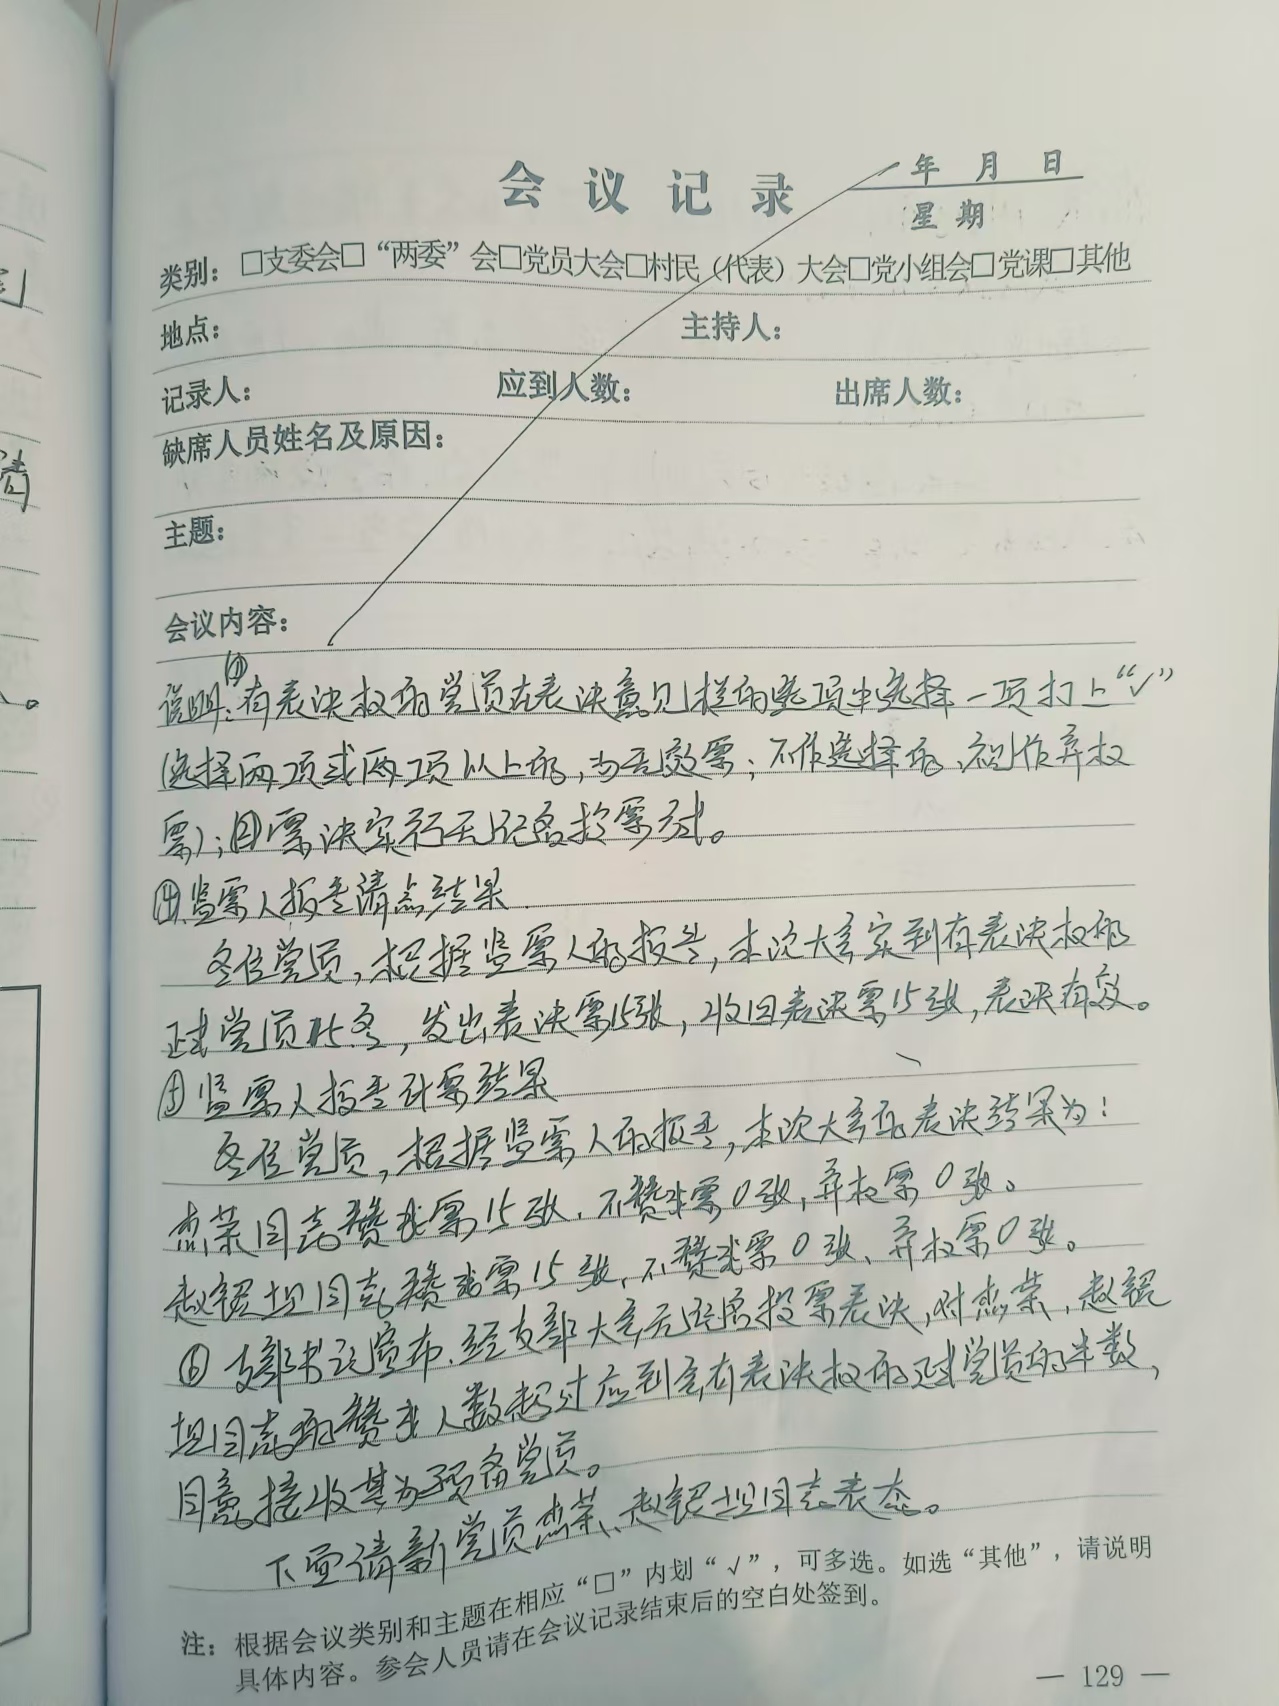 会议记录
年 月 日
星期
类别：□支委会□“两委”会□党员大会□村民（代表）大会□党小组会□党课□其他
地点： 主持人：
记录人： 应到人数： 出席人数：
缺席人员姓名及原因：
主题：
会议内容：
说明：①有表决权的党员在表决意见栏的选项中选择一项打上“√”
(选择两项或两项以上的，为无效票；不作选择的，视作弃权
票)；②票决实行无记名投票方式。
④监票人报告清点结果
各位党员，根据监票人的报告，本次大会实到有表决权的
正式党员15名，发出表决票15张，收回表决票15张，表决有效。
⑤监票人报告计票结果
各位党员，根据监票人的报告，本次大会的表决结果为：
荣同志赞成票15张，不赞成票0张，弃权票0张。
赵 坦同志赞成票15张，不赞成票0张、弃权票0张。
⑥支部书记宣布，经支部大会无记名投票表决，对 荣、赵
坦同志的赞成人数超过应到会有表决权的正式党员的半数，
同意接收其为预备党员。
下面请新党员 荣、赵 坦同志表态。
注：根据会议类别和主题在相应“□”内划“√”，可多选。如选“其他”，请说明
具体内容。参会人员请在会议记录结束后的空白处签到。
— 129 —